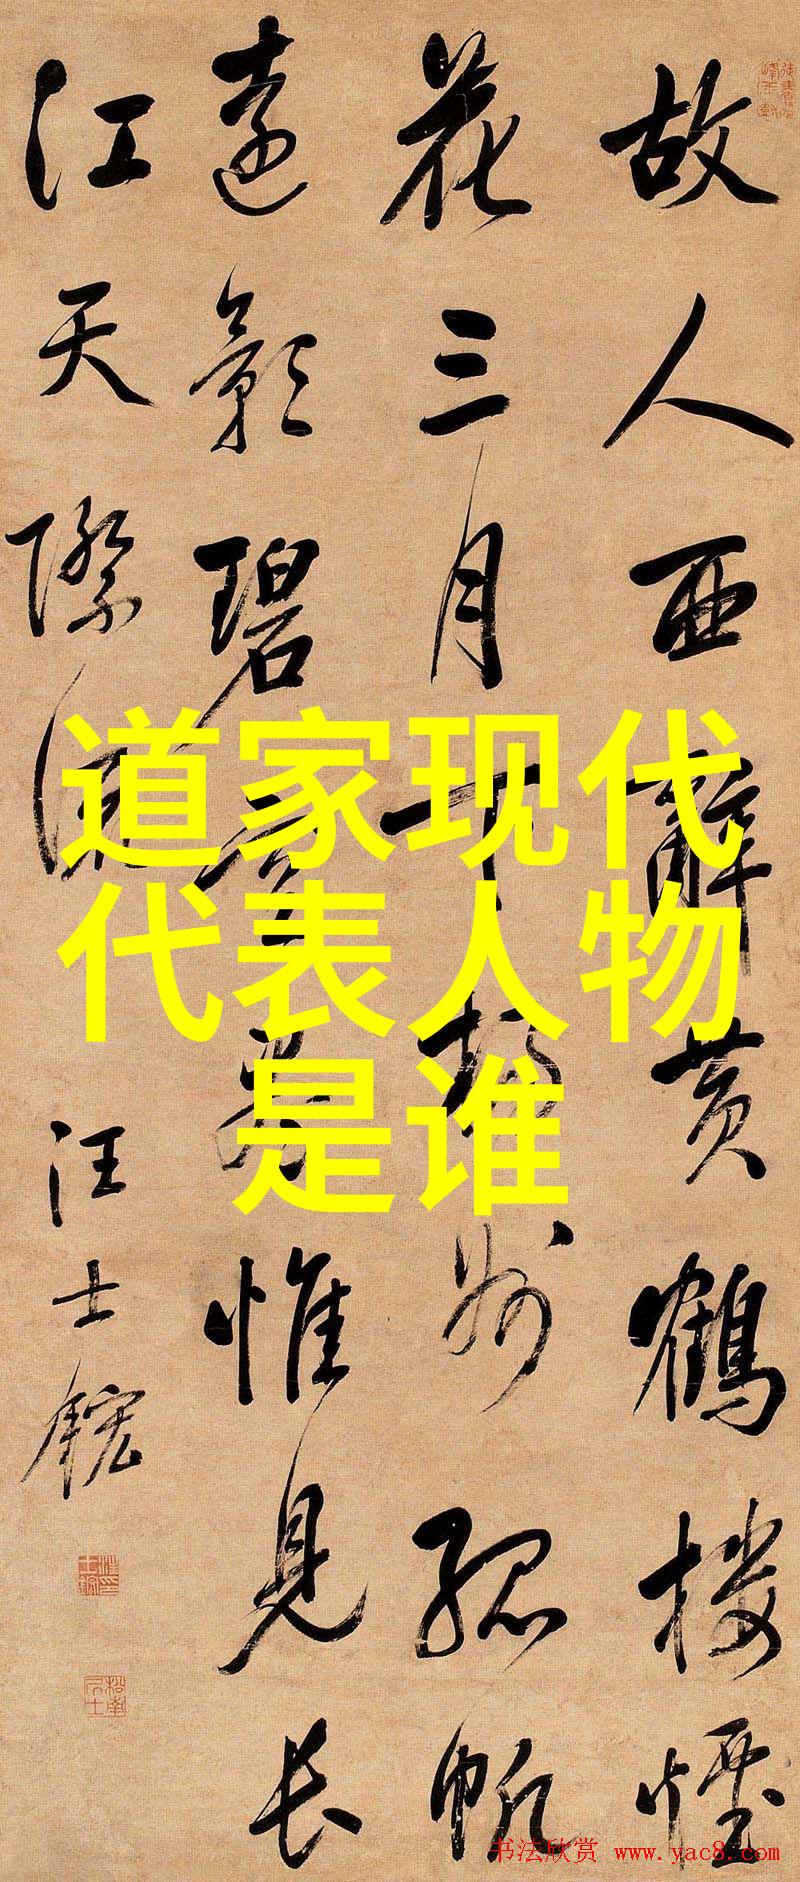 故人西辭黄鶴楼煙
花三月下揚州孤帆
遠影碧空盡惟見長
江天際流
汪士鋐
道家现代
代表人物
是谁
书法欣赏 www.yac8.com